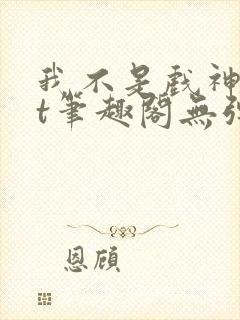 我不是戲神
t筆趣閣無
恩顧